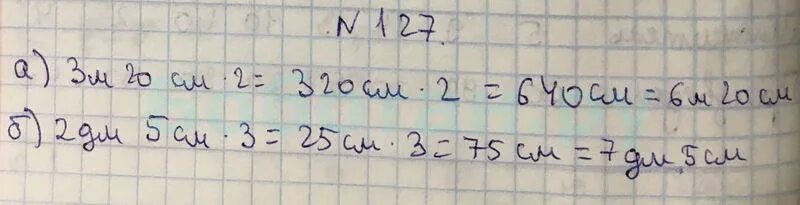 N 127.
а) 3м 20 см · 2 = 320см · 2 = 640см = 6м 20см
б) 2дм 5см · 3 = 25см · 3 = 75см = 7дм 5см